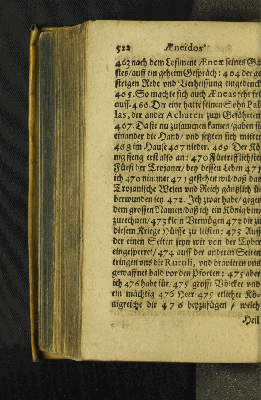 522 Æneidos
463 nach dem Losiment Æneæ seines Ga
stes/ auff ein geheim Gespräch: 464 der ge
strigen Rede und Verheissung eingedenck
465. So machte sich auch Æneas sehr frü
auff. 466. Der eine hatte seinen Sohn Pal
las, der ander Achaten zum Gefährten
467. Da sie nu zusammen kamen/ gaben sie
einander die Hand/ und setzten sich mitten
468 im Hause 407 nieder. 469. Der Kö
nig fieng erst also an: 470 Fürtrefflichster
Fürst der Trojaner/ bey dessen Leben 471
ich 470 nimmer 471 gestehen wil/ daß das
Trojanische Wesen und Reich gänzlich ü-
berwunden sey. 472. Ich zwar habe/ gegen
dem grossen Namen/ daß ich ein König bin/
zurechnen/ 473 klein Vermögen 472 dir zu
diesem Kriege Hülffe zu leisten: 473 Auff
der einen Seiten seyn wir von der Tyber
eingesperret/ 474 auff der anderen Seiten
dringen uns die Rutuli, und braviren uns
gewaffnet bald vor den Pforten: 475 aber
ich 476 habe für/ 475 grosse Völcker und
ein mächtig 476 Heer 475 etlicher Kö-
nigreiche dir 476 beyzufügen/ welch
Heil